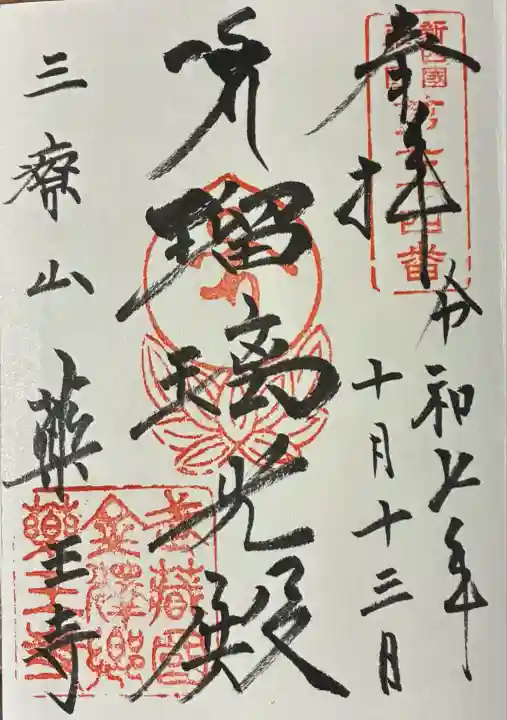 奉拝
令和七年
十月十三日
瑠璃光殿
三療山 薬王寺
武蔵國
金澤郷
薬王寺